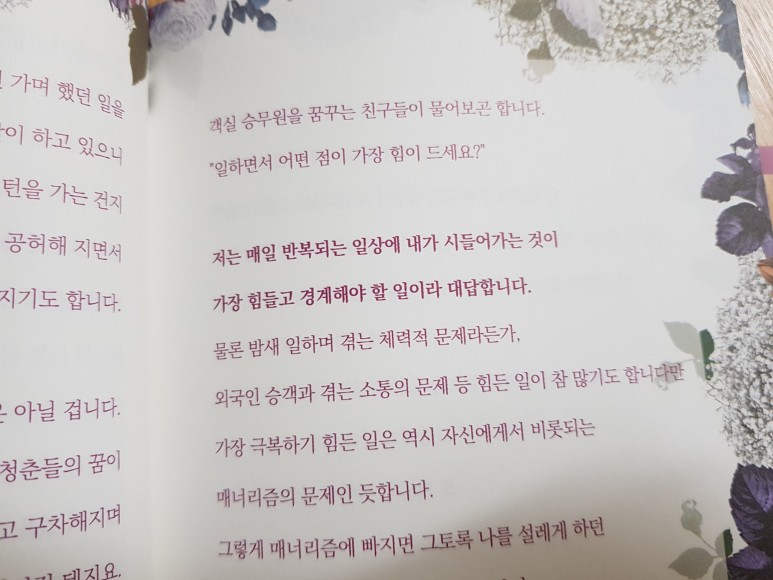 가며 했던 일을
하고 있으니
턴을 가는 건지
공허해 지면서
지기도 합니다.
아닐 겁니다.
청춘들의 꿈이
구차해지며
객실 승무원을 꿈꾸는 친구들이 물어보곤 합니다.
"일하면서 어떤 점이 가장 힘이 드세요?"
저는 매일 반복되는 일상에 내가 시들어가는 것이
가장 힘들고 경계해야 할 일이라 대답합니다.
물론 밤새 일하며 겪는 체력적 문제라든가,
외국인 승객과 겪는 소통의 문제 등 힘든 일이 참 많기도 합니다만
가장 극복하기 힘든 일은 역시 자신에게서 비롯되는
매너리즘의 문제인 듯합니다.
그렇게 매너리즘에 빠지면 그토록 나를 설레게 하던